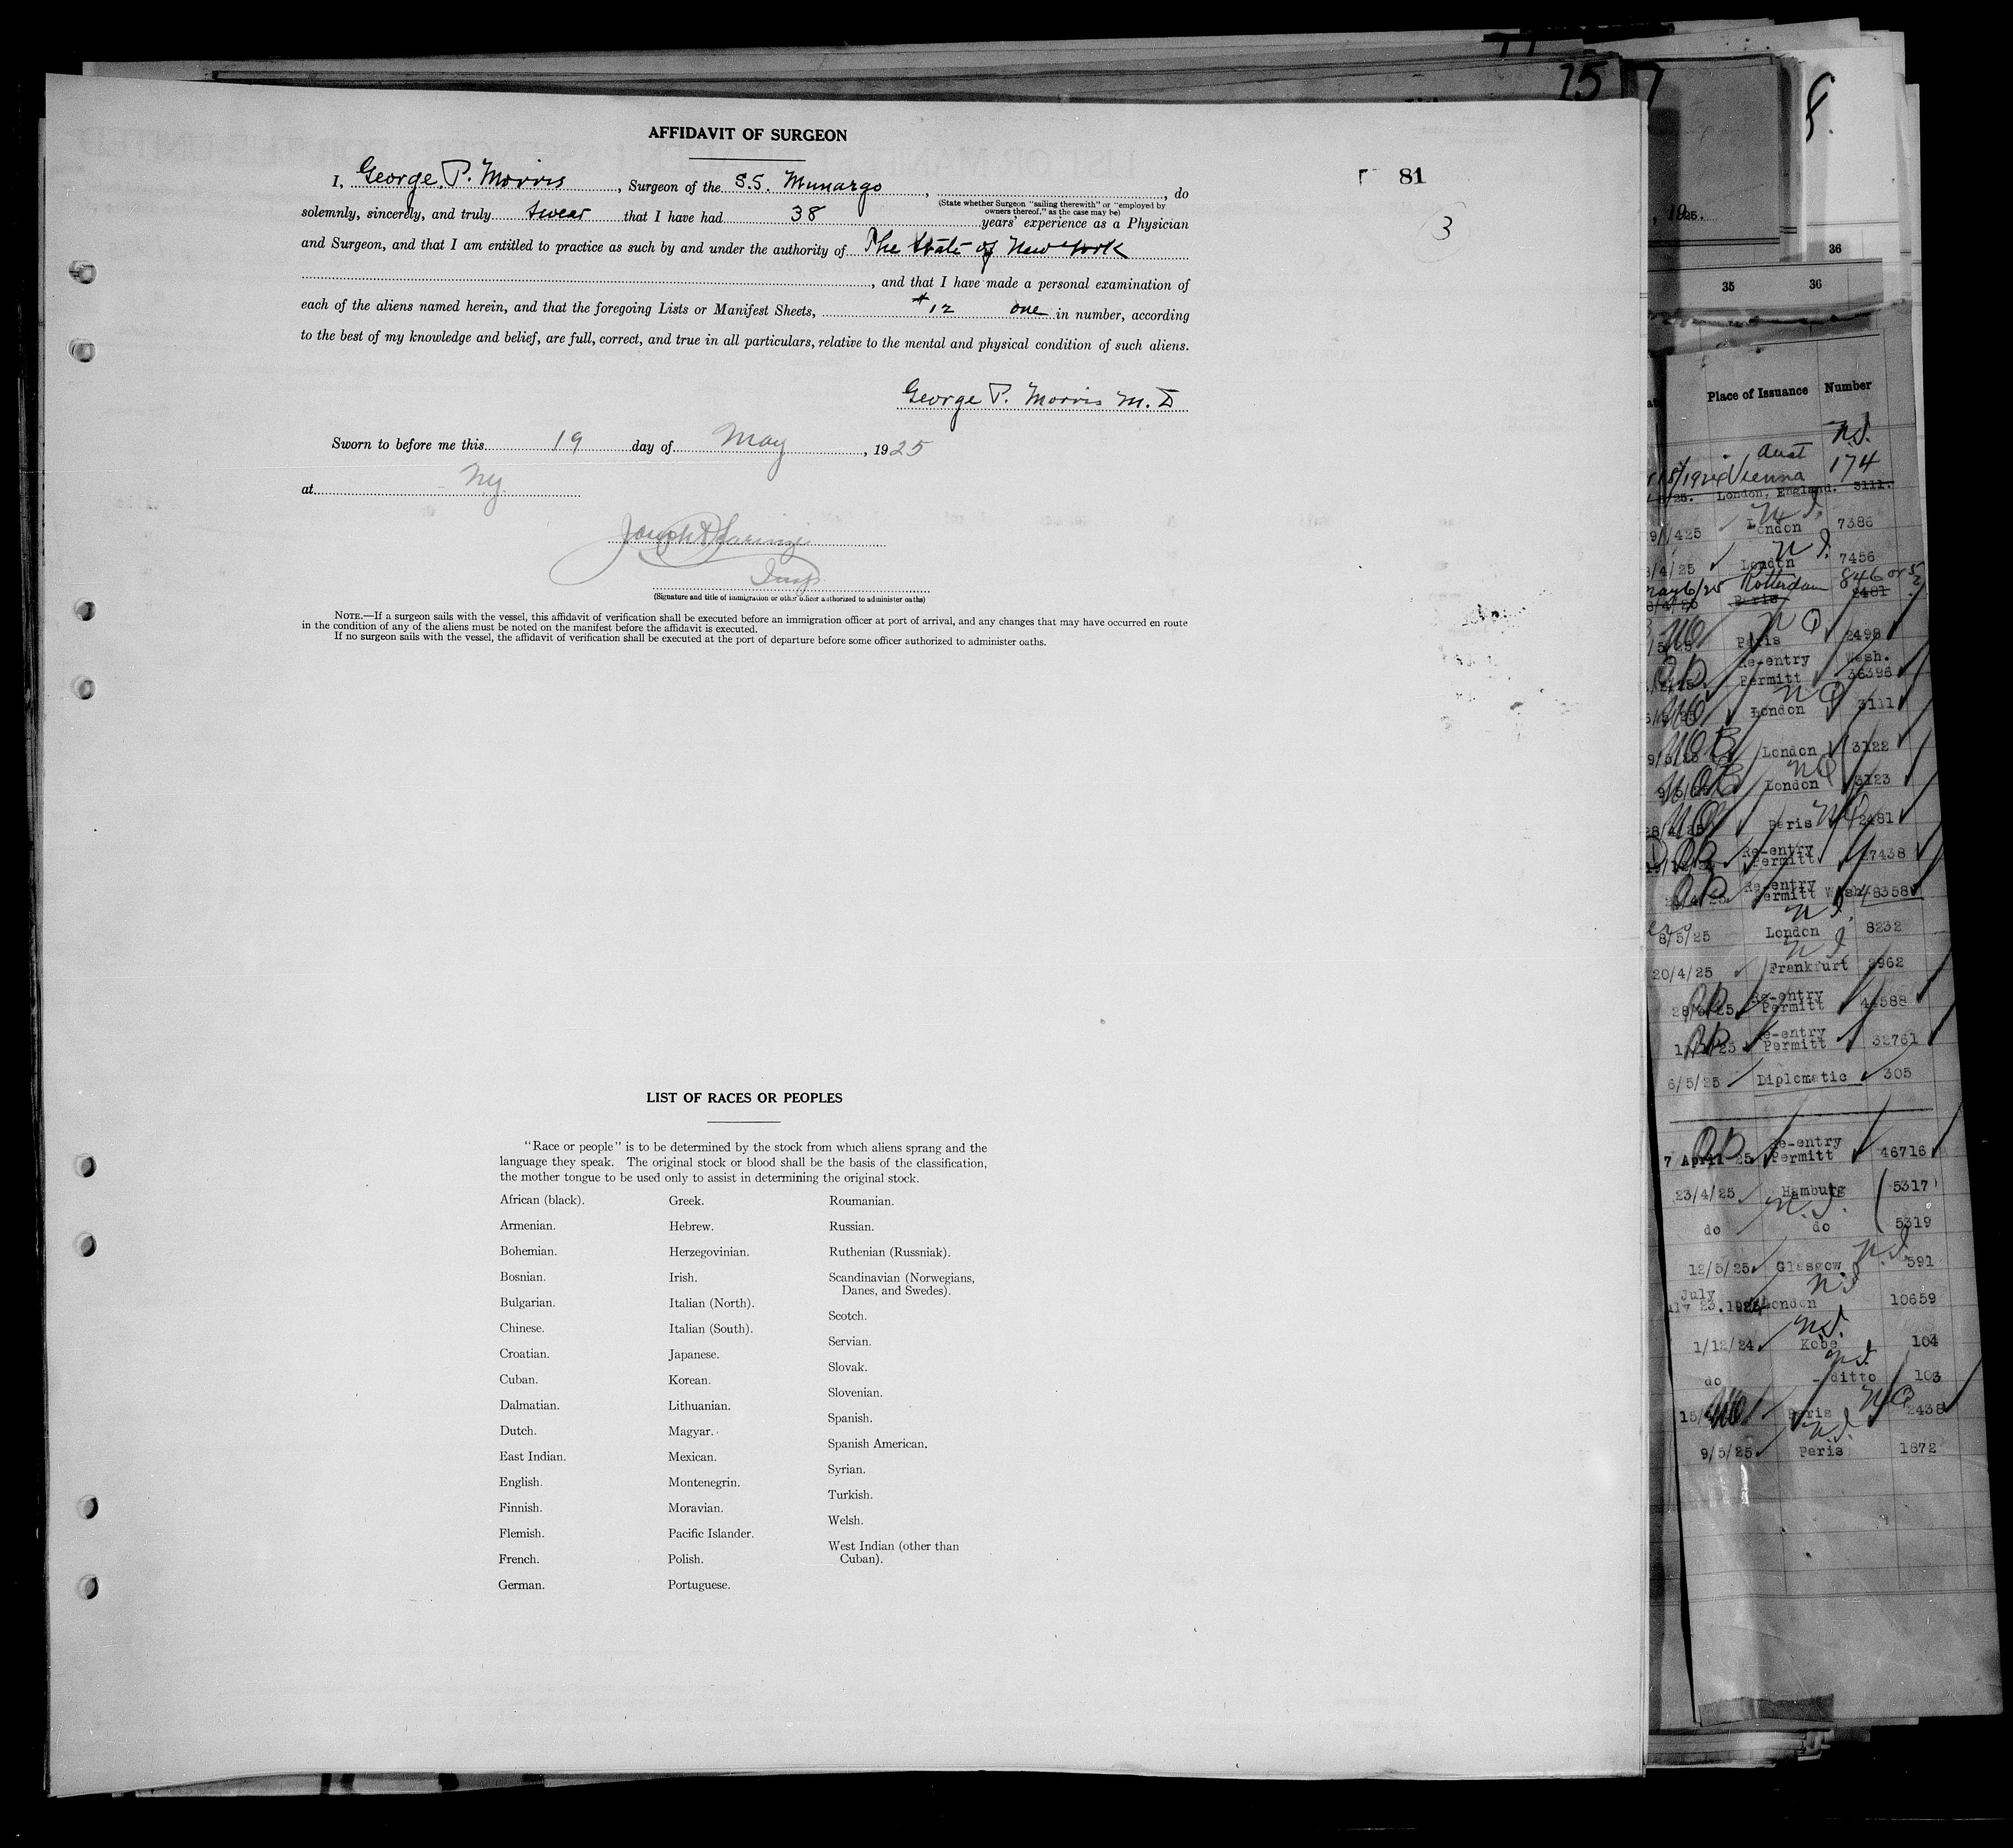 AFFIDAVIT OF SURGEON
81
3
I, George P. Morris, Surgeon of the S.S. Munargo, , do
(State whether Surgeon "sailing therewith" or "employed by
owners thereof," as the case may be)
solemnly, sincerely, and truly swear that I have had 38 years' experience as a Physician
and Surgeon, and that I am entitled to practice as such by and under the authority of The State of New York
, and that I have made a personal examination of
each of the aliens named herein, and that the foregoing Lists or Manifest Sheets, #12 one in number, according
to the best of my knowledge and belief, are full, correct, and true in all particulars, relative to the mental and physical condition of such aliens.
George P. Morris M.D
Sworn to before me this 19 day of May, 1925
at NY.
Insp
(Signature and title of immigration or other officer authorized to administer oaths)
NOTE.—If a surgeon sails with the vessel, this affidavit of verification shall be executed before an immigration officer at port of arrival, and any changes that may have occurred en route
in the condition of any of the aliens must be noted on the manifest before the affidavit is executed.
If no surgeon sails with the vessel, the affidavit of verification shall be executed at the port of departure before some officer authorized to administer oaths.
LIST OF RACES OR PEOPLES
"Race or people" is to be determined by the stock from which aliens sprang and the
language they speak. The original stock or blood shall be the basis of the classification,
the mother tongue to be used only to assist in determining the original stock.
African (black).
Armenian.
Bohemian.
Bosnian.
Bulgarian.
Chinese.
Croatian.
Cuban.
Dalmatian.
Dutch.
East Indian.
English.
Finnish.
Flemish.
French.
German.
Greek.
Hebrew.
Herzegovinian.
Irish.
Italian (North).
Italian (South).
Japanese.
Korean.
Lithuanian.
Magyar.
Mexican.
Montenegrin.
Moravian.
Pacific Islander.
Polish.
Portuguese.
Roumanian.
Russian.
Ruthenian (Russniak).
Scandinavian (Norwegians,
Danes, and Swedes).
Scotch.
Servian.
Slovak.
Slovenian.
Spanish.
Spanish American.
Syrian.
Turkish.
Welsh.
West Indian (other than
Cuban).
15
8.
36
35 36
Place of Issuance Number
Vienna 174
London, England. 3111.
London 7386
/4/25 London 7456
Rotterdam 846
Paris 2481
Paris 2498
Re-entry Wash.
Permitt 36396
London 3111
London 3122
London 3123
Paris 2481
Re-entry
Permitt 7438
Re-entry
Permitt Wash 8358
8/5/25 London 8232
20/4/25 Frankfurt 2962
Re-entry
Permitt 44588
Re-entry
Permitt 32761
6/5/25 Diplomatic 305
Re-entry
7 April 25 Permitt 46716
23/4/25 Hamburg (5317)
do do 5319
12/5/25 Glasgow 591
July
23.192 London 10659
1/12/24 Kobe 104
do ditto 103
Paris 2438
9/5/25 Paris 1872